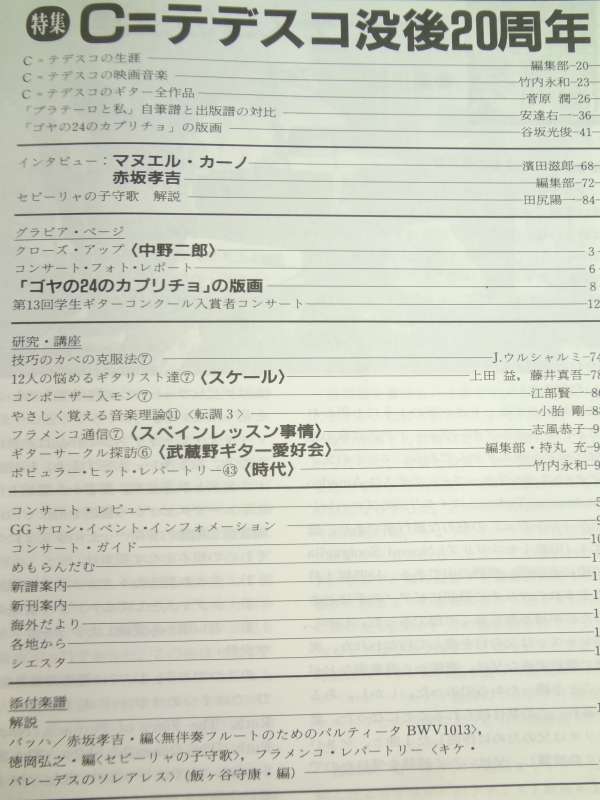 特集 C=テデスコ没後20周年
C=テデスコの生涯 編集部-20
C=テデスコの映画音楽 竹内永和-23
C=テデスコのギター全作品 菅原 潤-26
「プラテーロと私」自筆譜と出版譜の対比 安達右一-36
「ゴヤの24のカプリチョ」の版画 谷坂光俊-41
インタビュー：マヌエル・カーノ 濱田滋郎-68
赤坂孝吉 編集部-72
セビーリャの子守歌 解説 田尻陽一-84
グラビア・ページ
クローズ・アップ〈中野二郎〉 3
コンサート・フォト・レポート 6
「ゴヤの24のカプリチョ」の版画 8
第13回学生ギターコンクール入賞者コンサート 12
研究・講座
技巧のカベの克服法⑦ J.ウルシャルミ-74
12人の悩めるギタリスト達⑦〈スケール〉 上田 益，藤井真吾-78
コンポーザー入モン⑦ 江部賢一
やさしく覚える音楽理論⑪〈転調3〉 小胎 剛
フラメンコ通信⑦〈スペインレッスン事情〉 志風恭子
ギターサークル探訪⑥〈武蔵野ギター愛好会〉 編集部・持丸 充
ポピュラー・ヒット・レパートリー㊸〈時代〉 竹内永和
コンサート・レビュー
GGサロン・イベント・インフォメーション
コンサート・ガイド
めもらんだむ
新譜案内
新刊案内
海外だより
各地から
シエスタ
添付楽譜
解説
バッハ／赤坂孝吉・編〈無伴奏フルートのためのパルティータ BWV1013〉，
徳岡弘之・編〈セビーリャの子守歌〉，フラメンコ・レパートリー〈キケ・
パレーデスのソレアレス〉（飯ヶ谷守康・編）